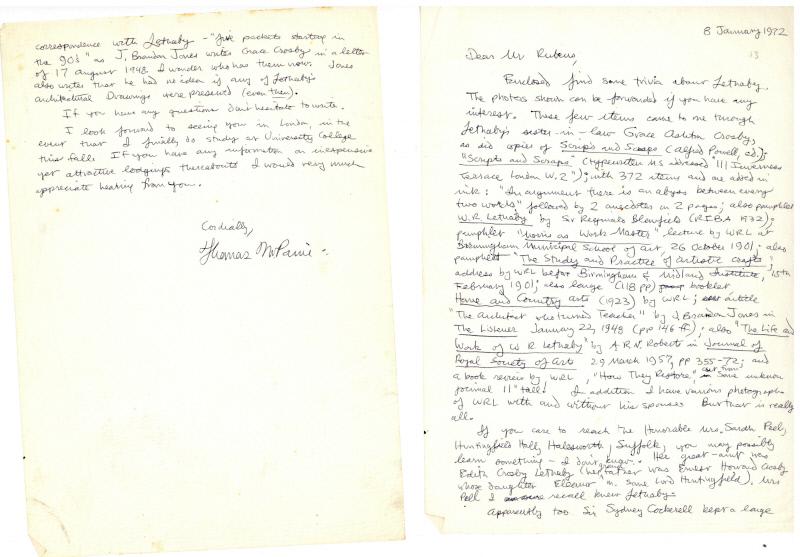 8 January 1972
13
Dear Mr Rubens,
Enclosed find some trivia about Lethaby.
The photos shown can be forwarded if you have any
interest. These few items came to me through
Lethaby's sister-in-law Grace Ashton Crosby,
as did copies of Scrips and Scraps (Alfred Powell, ed.);
"Scripts and Scraps" (typewritten MS adressed 111 Inverness
Terrace London W.2"); with 372 items and one added in
ink: "In argument there is an abyss between every
two words" followed by 2 anecdotes on 2 pages; also pamphlet
W.R. Lethaby by Sir Reginald Blomfield (RIBA 1932);
pamphlet "Morris as Work Master" lecture by WRL at
Birmingham Municipal School of Art, 26 October 1901; also
pamphlet "The Study and Practice of Artistic Crafts",
address by WRL before Birmingham & Midland Institute, 15th
February 1901; also large (118 pp) booklet
Home and Country Arts (1923) by WRL; article
"The Architect who turned Teacher" by J Brandon Jones in
The Listener January 22, 1948 (pp 146 ff); also "The Life and
Work of W R Lethaby" by A.R.N. Roberts in Journal of
Royal Society of Arts 29 March 1957, pp 355-72; and
a book review by WRL, "How They Restore," cut from some unknown
journal 11" tall. In addition I have various photographs
of WRL with and without his spouse. But that is really
all.
If you care to reach the Honorable Mrs. Sarah Peel,
Huntingfield Hall, Halesworth, Suffolk, you may possibly
learn something - I don't know. Her great-aunt was
Edith Crosby Lethaby (her grandfather was Ernest Howard Crosby
whose daughter Eleanor m. some Lord Huntingfield). Mrs
Peel I recall knew Lethaby.
Apparently too Sir Sydney Cockerell kept a large
correspondence with Lethaby - "five packets starting in
the 90s" as J. Brandon Jones writes Grace Crosby in a letter
of 17 August 1948. I wonder who has them now. Jones
also writes that he had no idea if any of Lethaby's
architectural drawings were preserved (even then).
If you have any questions don't hesitate to write.
I look forward to seeing you in London, in the
event that I finally do study at University College
this fall. If you have any information on inexpensive
yet attractive lodgings thereabouts I would very much
appreciate hearing from you.
Cordially,
Thomas